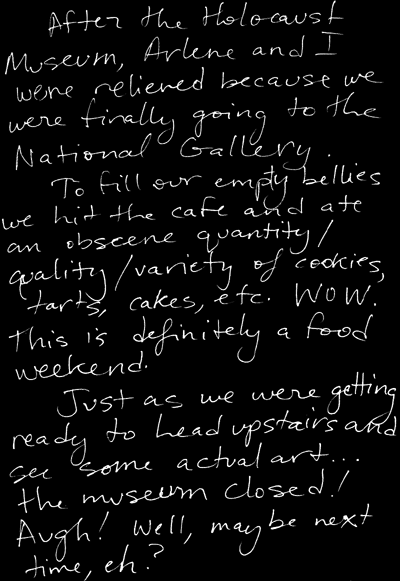 After the Holocaust
Museum, Arlene and I
were relieved because we
were finally going to the
National Gallery.
To fill our empty bellies
we hit the cafe and ate
an obscene quantity/
quality/variety of cookies,
tarts, cakes, etc. WOW.
This is definitely a food
weekend.
Just as we were getting
ready to head upstairs and
see some actual art...
the museum closed!
Augh! Well, maybe next
time, eh?